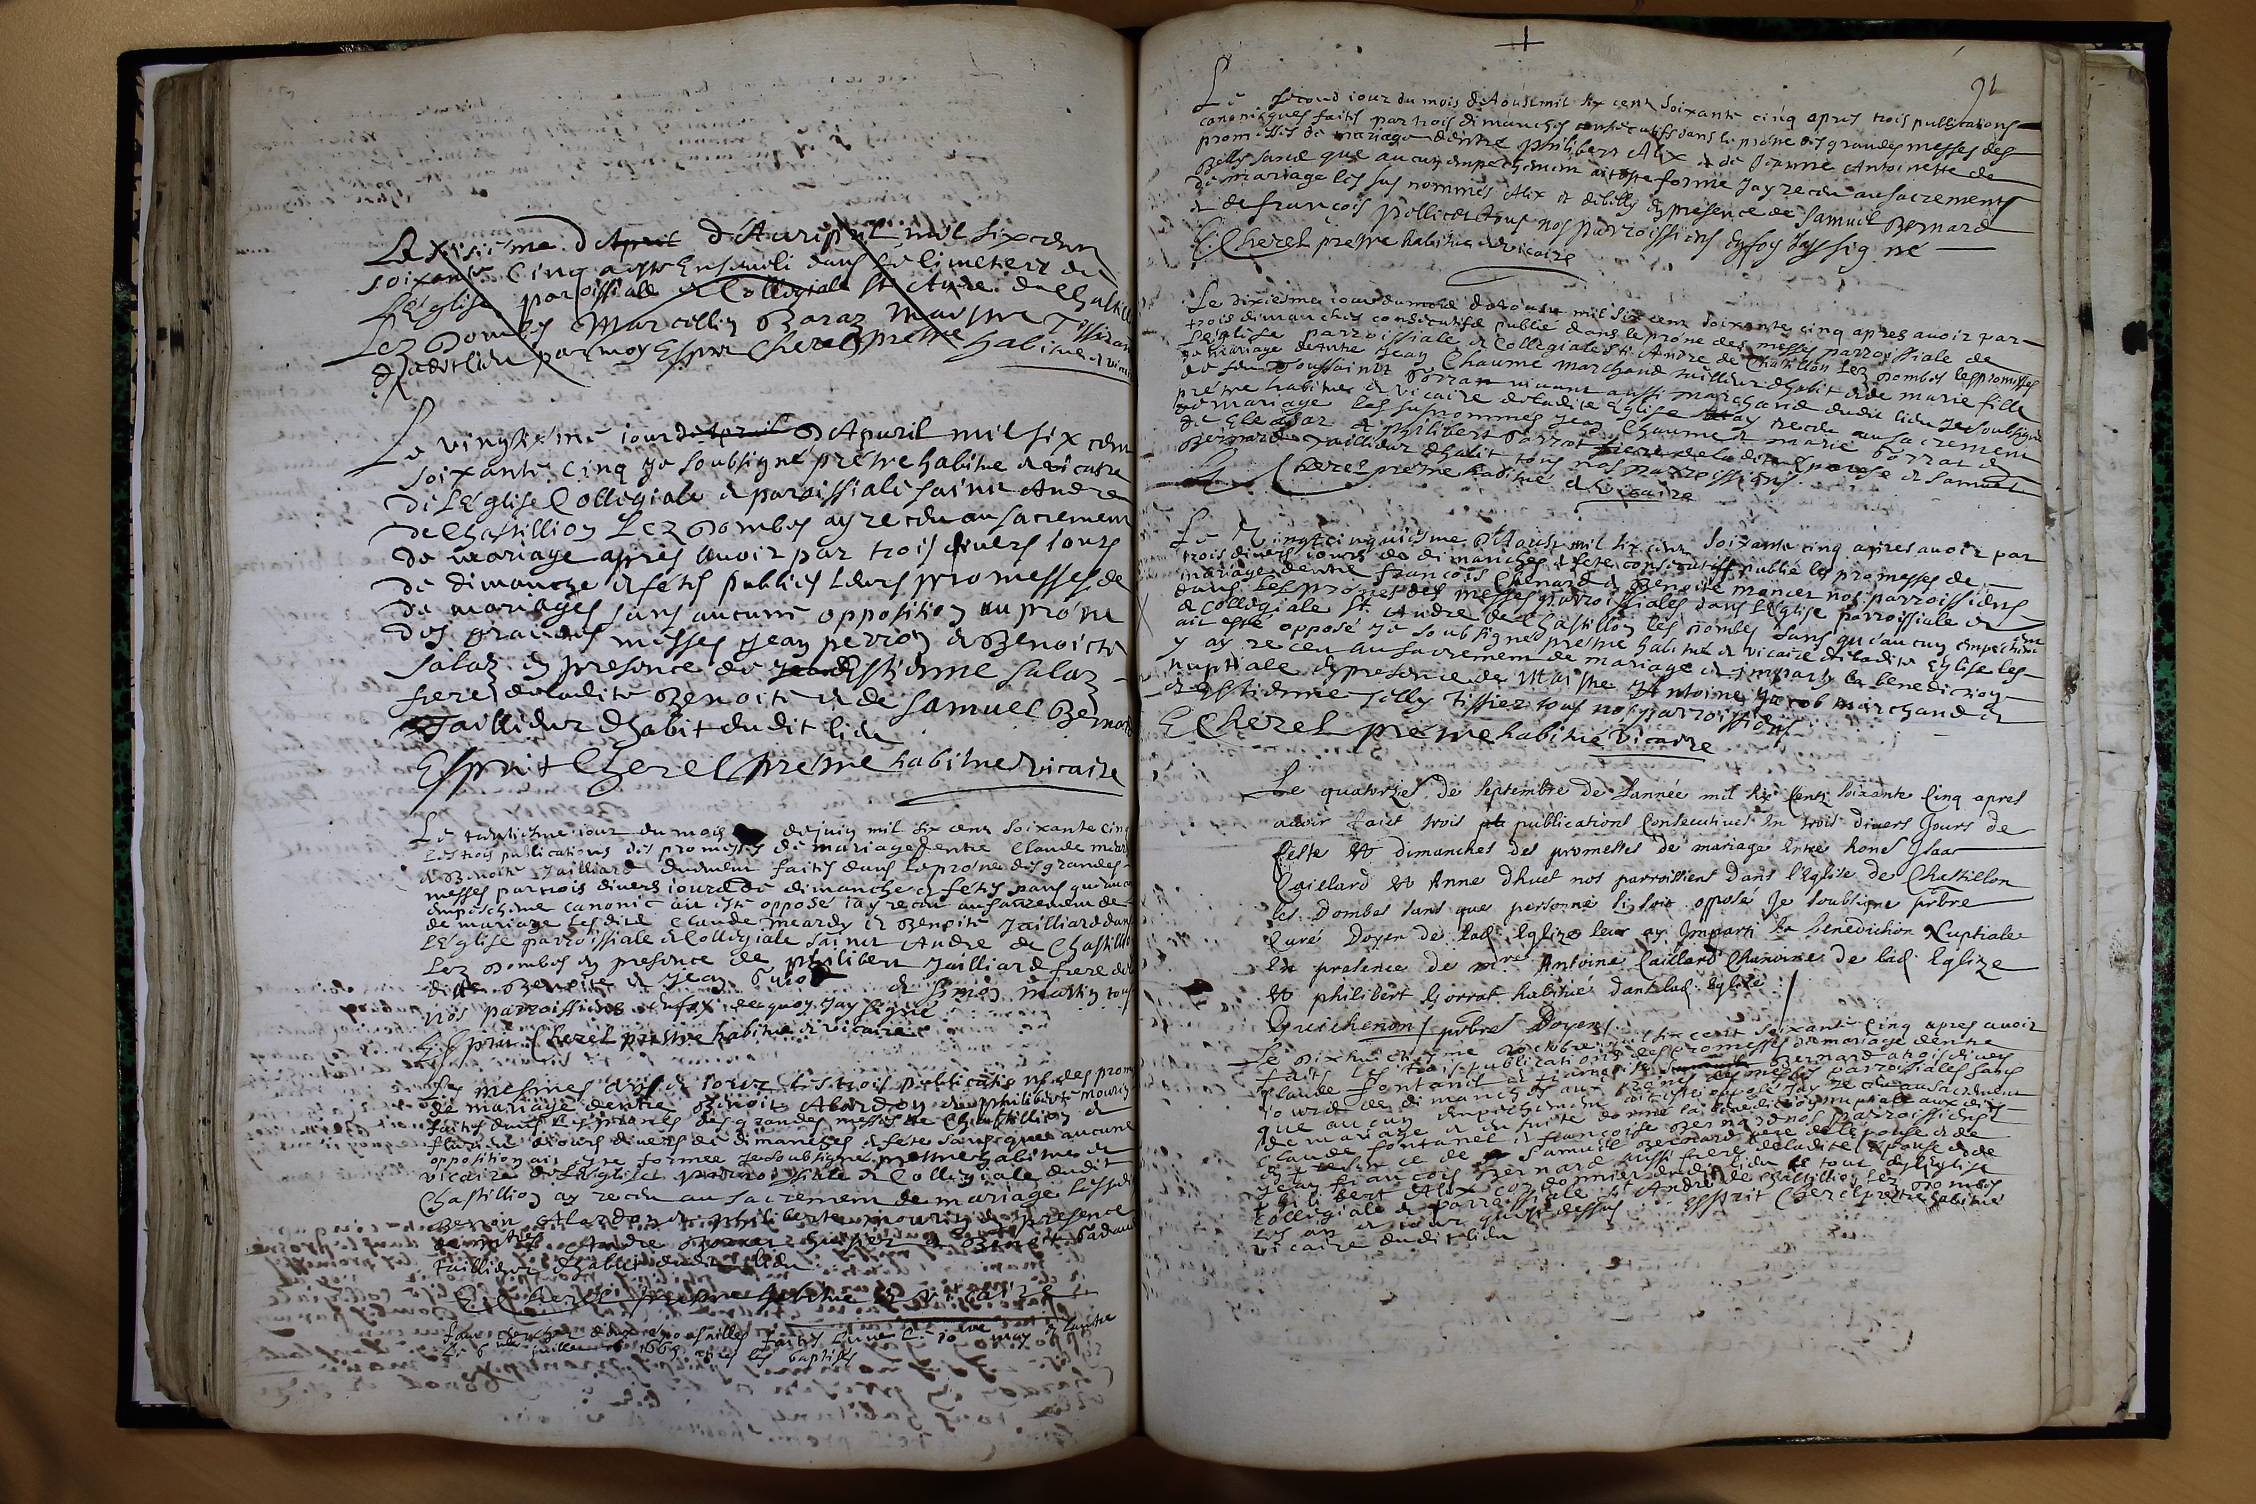 Le xixiesme d'Apuril d'Auripuil mil six cent
soixante Cinq a este Enseueli dans le Cimetiere de
l'Eglise paroissiale et Collegiale St Andre de Chastillion
Lez Dombes Marcellin Baraz Maistre Tissiran
dudit lieu par moy Esprit Cherel prestre habitué et vicaire
Le vingtiesme iour d'Apuril mil six cent
soixante Cinq Je soubsigné prestre habitué et vicaire
de L'Eglise Collegiale et paroissiale saint Andre
de Chastillion Lez Dombes ay receu au sacrement
de mariage apres auoir par trois diuers iours
de dimanche et fetes publies Leurs promesses de
de mariages sans aucune opposition au prone
des grandes messes Jean perron et Benoicte
Salaz en presence de Estienne Salaz
frere de ladite Benoite et de Samuel Bernard
Tailleur d'habit dudit lieu
Esprit Cherel prestre habitué et vicaire
Le iour du mois de juin mil six cent soixante Cinq
les trois publications des promesses de mariage d'entre Claude meardy
et Benoite Jailliard duement faites dans le prone des grandes
messes par trois diuers iours de dimanche et fetes sans qu'aucun
empeschement canonic ait esté opposé iay receu au sacrement de
mariage lesdits Claude meardy et Benoite Jailliard dans
L'Eglise parroissiale et Collegiale saint Andre de Chastillion
Lez Dombes en presence de philibert Jailliard frere de la
dite Benoite et Jean et Simon Martin tous
nos parroissiens en foy dequoy Jay signé
Esprit Cherel prestre habitué et vicaire
Les mesmes an et iour les trois publications des promesses
de mariage dentre Benoit Abardon et philiberte mourin
faites dans les prones des grandes messes de Chastillion et
iours diuers de dimanches et fete sans que aucune
opposition ait esté formée Je soubsigné prestre habitué et
vicaire de L'Eglise parroissiale et Collegiale dudit
Chastillion ay receu au sacrement de mariage lesdits
Benoit Abardon et philiberte mourin en presence
de maitres Andre et Benoit
tailleur d'habit dudit lieu
E. Cherel prestre habitué et vicaire
faut chercher deux espousailles faites l'une le 10 may et l'autre
le 6 juillet 1665 apres les baptises
+
91
Le second iour du mois d'Aoust mil six cent soixante cinq apres trois publications
canonicques faites par trois dimanches consecutifs dans le prone des grandes messes des
promesses de mariage d'entre philibert Alix et de Antoinette de
Billy sans que aucun empeschement ait esté formé Jay receu au sacrement
de mariage les sus nommés Alix et de billy en presence de Samuel Bernard
et de françois pollicet tous nos parroissiens en foy Jay signé
E. Cherel prestre habitué et vicaire
Le dixiesme iour du mois d'Aoust mil six cent soixante cinq apres auoir par
trois dimanches consecutifs publié dans le prone des messes parroissiale de
l'eglise parroissiale et Collegiale St Andre de Chatillon Lez Dombes les promesses
de mariage dentre Jean Chaume marchand tailleur d'habit et de marie fille
de feu Toussaint Borrat viuant aussi marchand dudit lieu Je soubsigné
prestre habitué et vicaire de ladite Eglise ay receu au sacrement
de mariage les susnommés Jean Chaume et marie Borrat en
de Eleazar et philibert Borrat de ladite Epouse et Samuel
Bernard Tailleur d'habit tous nos parroissiens
E. Cherel prestre habitué et vicaire
Le Vingtcinquiesme d'Aoust mil six cent soixante cinq apres auoir par
trois diuers iours de dimanches et fete consecutifs publié les promesses de
mariage dentre françois Chenard et Benoite mancet nos parroissiens
dans les prones des messes parroissiales dans l'eglise parroissiale et
et collegiale St Andre de Chastillon les Dombes sans qu'aucun empeschement
ait esté opposé Je soubsigné prestre habitué et vicaire de ladite Eglise les
y ay receu au sacrement de mariage et imparty la benediction
nuptiale en presence de Maistre Antoine Jacob marchand et
et Estienne Tilly tissier tous nos parroissiens
E Cherel prestre habitué vicaire
Le quatorzie de Septembre de L'année mil six Cents soixante Cinq apres
auoir faict trois publications Consecutiues en trois diuers Jours de
feste et dimanches des promesses de mariage entre honet Isaac
Caillard et Anne dhuet nos parroissiens Dans l'Eglise de Chastillon
les Dombes sans que personne s'y soit opposé Je soubsigne pbre
Curé Doyen de lad. Eglize leur ay Imparti la benediction Nuptiale
En presence de mre Antoine Caillard Chanoine de lad. Eglize
et philibert Gorrat habitué dans lad. Eglize
Guichenon pbre Doyen
Le dixhuictiesme octobre mil six cent soixante Cinq apres auoir
faits les trois publications des promesses de mariage dentre
Claude Fontanel et francoise Bernard a trois diuers
iours de dimanches aux prones des messes parroissiales sans
que aucun empeschement ait esté opposé Jay receu au sacrement
de mariage et en suite donné la benediction nuptiale auxdits
Claude fontanel et francoise Bernard nos parroissiens
en presence de Samuel Bernard pere de l'epouse et de
Jean francois Bernard aussi frere de ladite Epouse et de
philibert Alix cordonnier dudit lieu le tout en l'eglise
Collegiale et parroissiale St André de Chastillion Lez Dombes
Les an et iour que dessus esprit Cherel prestre habitué
vicaire dudit lieu